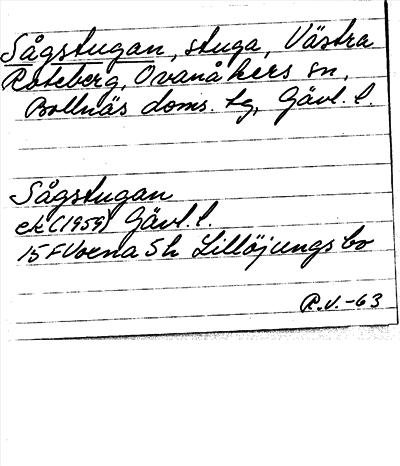 Sågstugan, stuga, Västra
Roteberg, Ovanåkers sn,
Bollnäs doms. tg, Gävl. l.
Sågstugan
ek (1959) Gävl. l.
15 F Voxna 5h Lillöjungsbo
R.V.-63